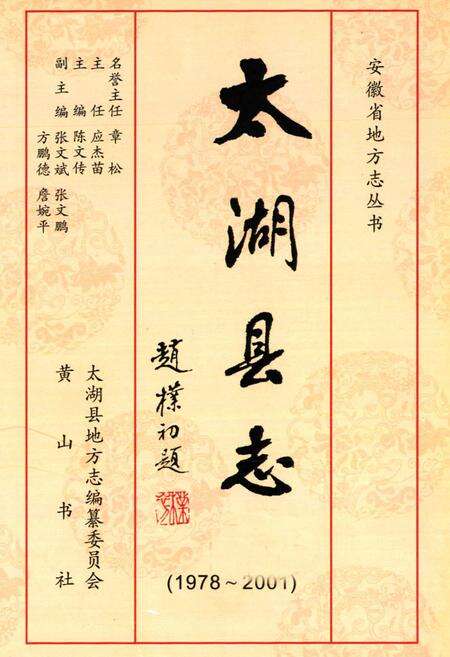 安徽省地方志丛书
太湖县志
(1978~2001)
趙樸初题
名誉主任 章松
主任 应杰苗
主编 陈文传
副主编 张文斌 张文鹏
方鹏德 詹婉平
太湖县地方志编纂委员会
黄山书社